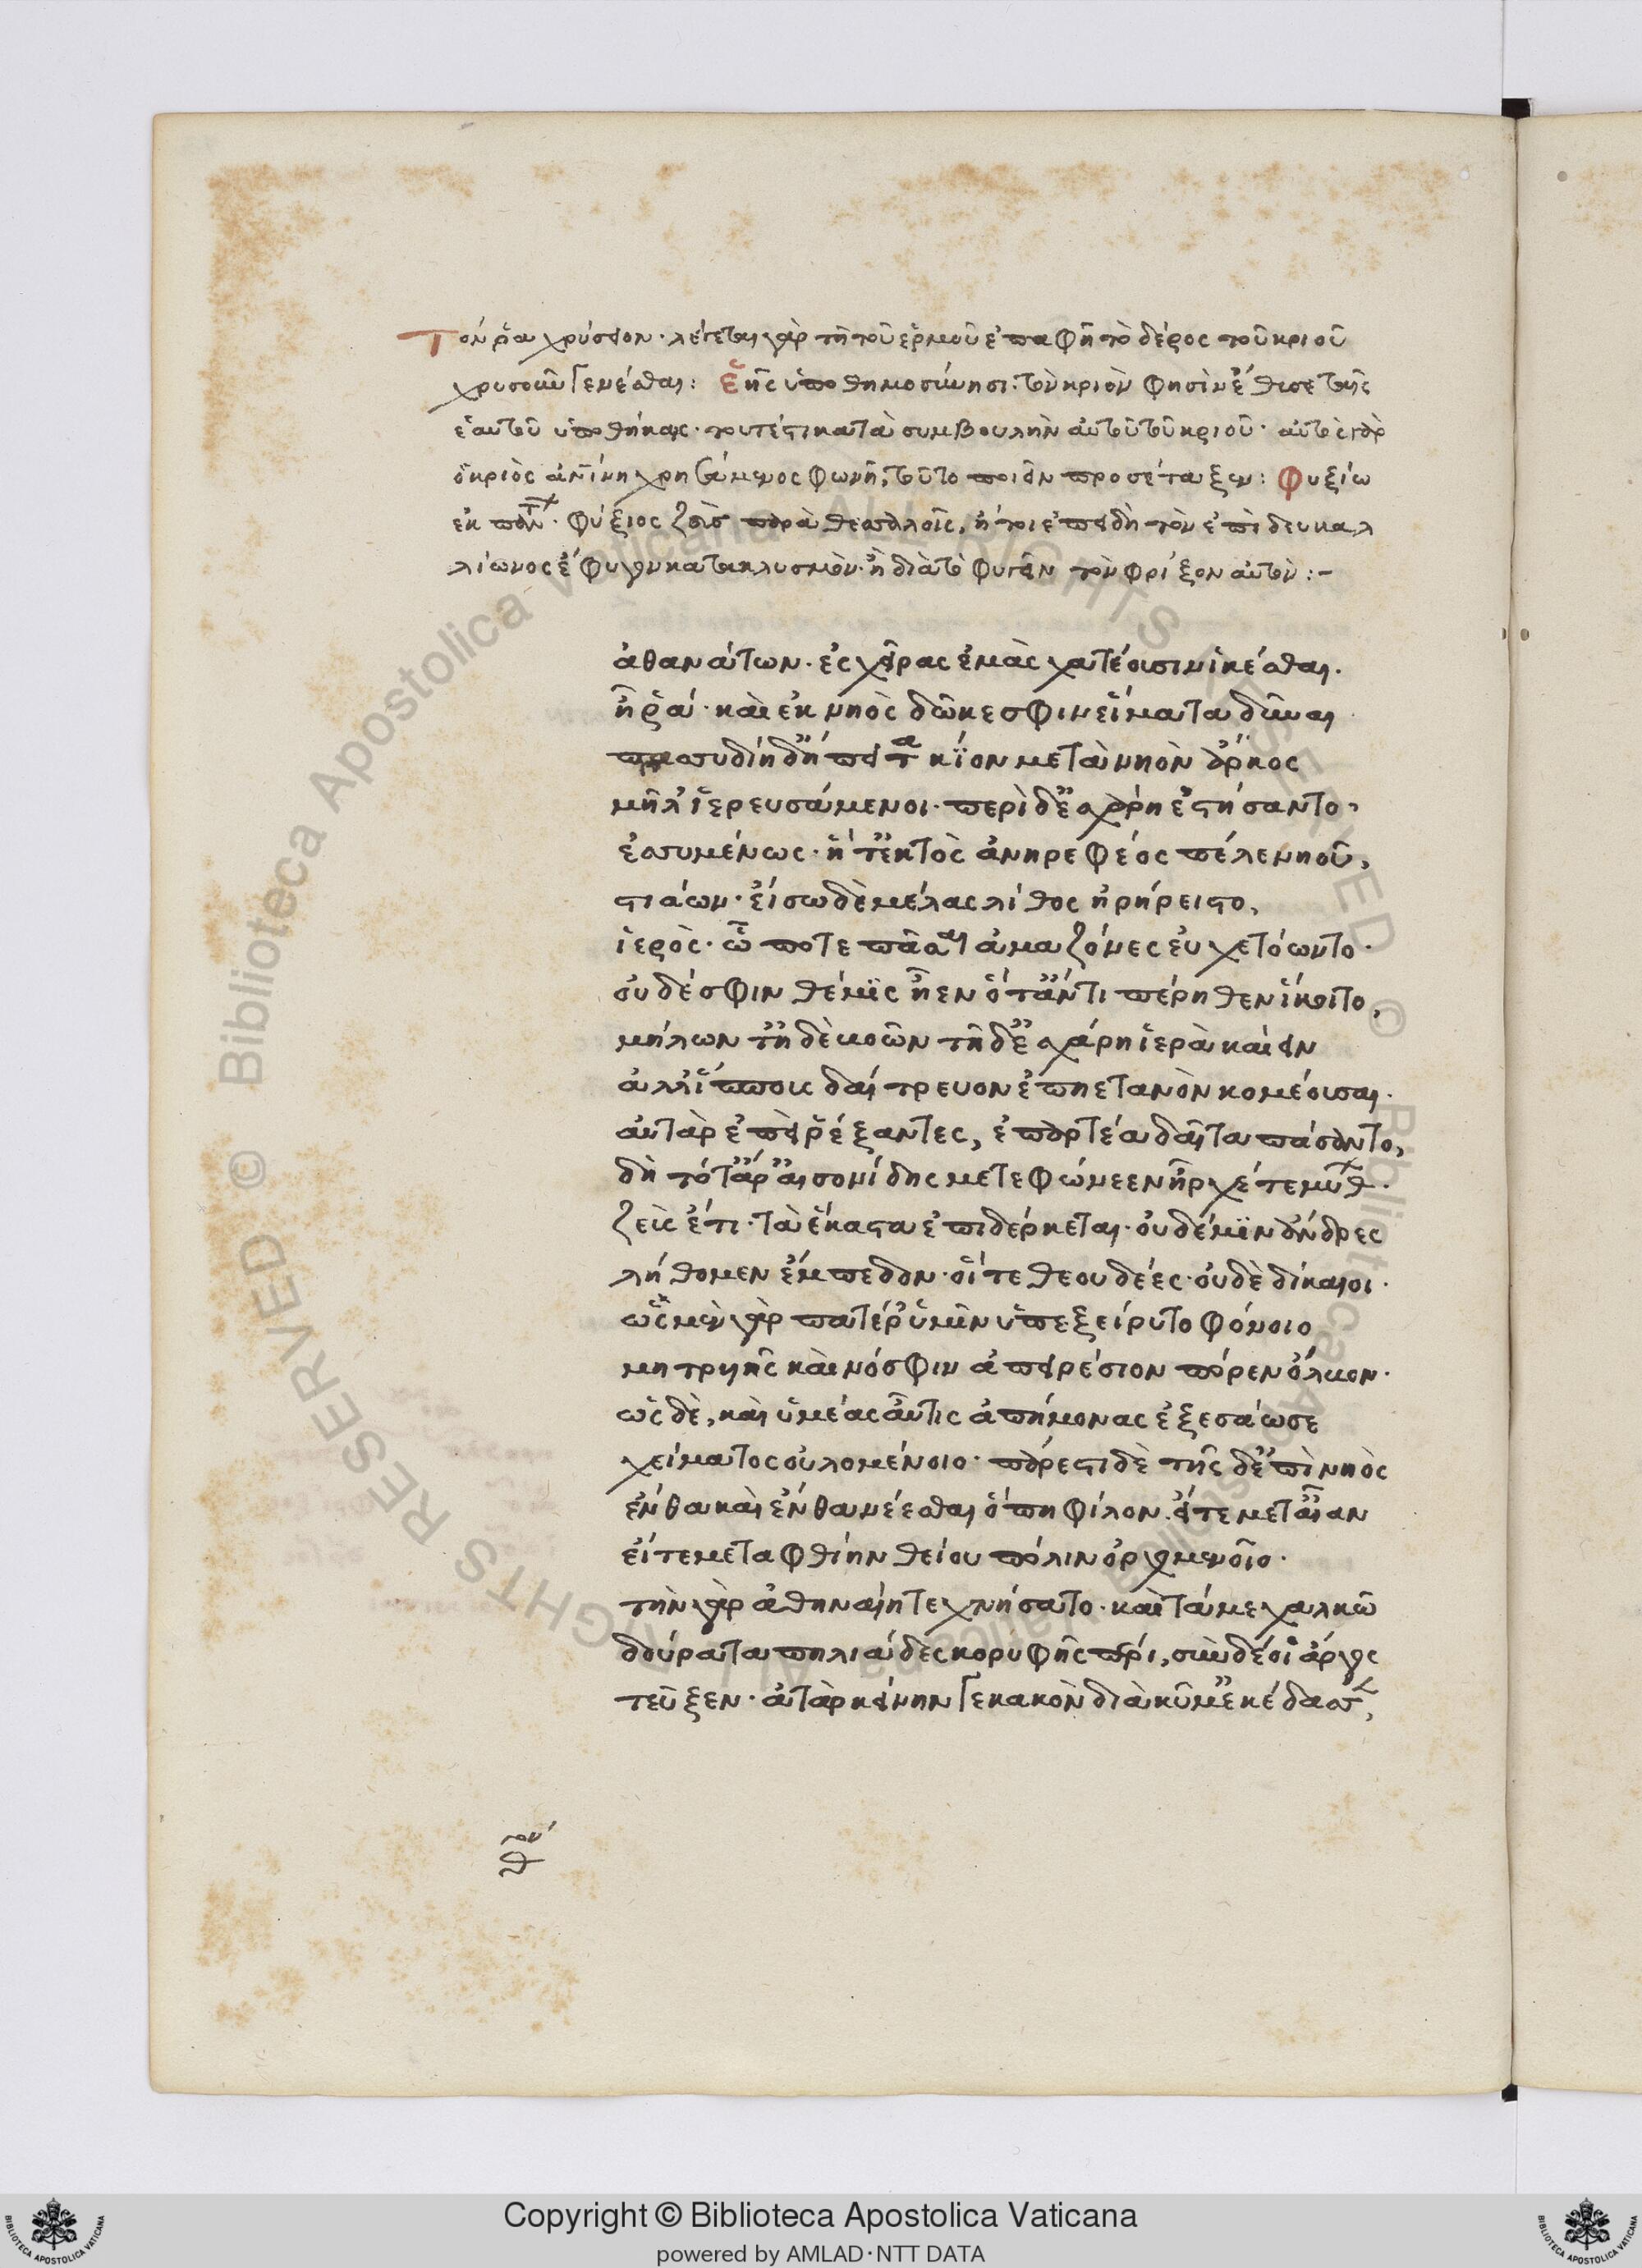 Τόν ῥα χρύσειον· λέγεται γὰρ τῆ τοῦ ἑρμοῦ ἐπαφῆ τὸ δέρος τοῦ κριοῦ
χρυσοῦν γενέσθαι: Ἑῆς ὑποθημοσύνησι· τὸν κριὸν φησὶν ἔθυσε ταῖς
ἑαυτοῦ ὑποθήκαις· τουτέστι κατὰ συμβουλὴν αὐτοῦ τοῦ κριοῦ· αὐτὸς γὰρ
ὁ κριὸς χρησάμενος φωνῆ, τοῦτο ποιεῖν προσέταξεν: Φυξίω
ἐκ πάντ· φύξιος ζεὺς παρὰ θεσσαλοῖς, ἤτοι ἐπειδὴ τὸν ἐπὶ δευκαλ
λίωνος ἔφυγον κατακλυσμὸν· ἢ διὰ τὸ φυγεῖν τὸν φρίξον αὐτὸν :-
ἀθανάτων· ἐς χεῖρας ἐμὰς χατέουσιν ἱκέσθαι.
ἦ ῥά· καὶ ἐκ νηὸς δῶκε σφιν εἵματα δῦναι
πασσυδίη δἤπειτα κίον μετὰ νηὸν ἄρηος
μῆλ' ἱερευσάμενοι· περὶ δ' ἐσχάρη ἐστήσαντο,
ἐσσυμένως· ἥ τ' ἐκτὸς ἀνηρεφέος πέλε νηοῦ,
στιάων· εἴσω δὲ μέλας λίθος ἠρήρειστο,
ἱερὸς· ὧ ποτε πᾶσαι ἀμαζόνες εὐχετόωντο·
οὐδέ σφιν θέμις ἦεν ὅτ' ἀντιπέρηθεν ἵκοιτο,
μήλων τ' ἠδὲ βοῶν τῆδ' ἐσχάρη ἱερὰ καίειν
ἀλλ' ἵππους δαίτρευον ἐπηετανὸν κομέουσαι.
αὐτὰρ ἐπεὶ ῥέξαντες, ἐπαρτέα δαῖτα πάσαντο,
δὴ τότ' ἄρ' αἰσονίδης μετεφώνεεν ἦρχέ τε μύθ·
ζεὺς ἔτι· τὰ ἕκαστα ἐπιδέρκεται· οὐδέ μιν ἄνδρες
λήθομεν ἔμπεδον· οἵ τε θεουδέες· οὐδὲ δίκαιοι·
ὡς μὲν γὰρ πατέρ' ὑμὶν ὑπεξείρυτο φόνοιο
μητρυιῆς καὶ νόσφιν ἀπειρέσιον πόρεν ὄλβον·
ὡς δὲ, καὶ ὑμέας αὖτις ἀπήμονας ἐξεσάωσε
χείματος οὐλομένοιο· πάρεστι δὲ τῆσδ' ἐπὶ νηὸς
ἔνθα καὶ ἔνθα νέεσθαι ὅπη φίλον. εἴτε μετ' αἶαν
εἴτε μετὰ φθίην θείου πόλιν ὀρχμενοῖο·
τὴν γὰρ ἀθηναίη τεχνήσατο· καὶ τάμε χαλκῶ
δούρατα πηλιάδες κορυφῆς πέρι, σὺν δέ οἱ ἄργος
τεῦξεν· ἀτὰρ κείνην γε κακὸν διὰ κῦμ' ἐκέδασσ,